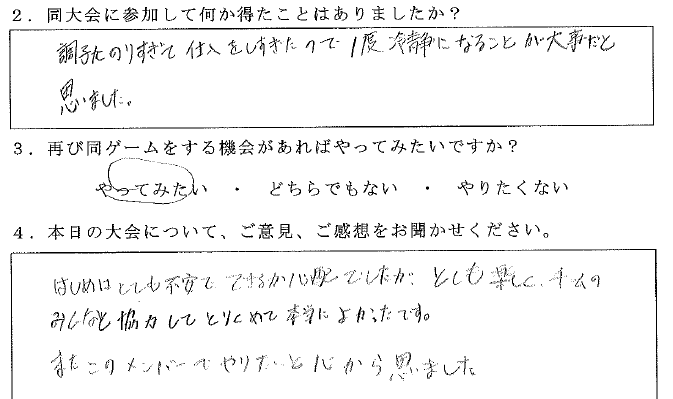 2．同大会に参加して何か得たことはありましたか？
調子にのりすぎて仕入をしすぎたので1度冷静になることが大事だと
思いました。
3．再び同ゲームをする機会があればやってみたいですか？
やってみたい ・ どちらでもない ・ やりたくない
4．本日の大会について、ご意見、ご感想をお聞かせください。
はじめはとても不安でできるか心配でしたが、とても楽しく、チームの
みんなと協力してとりくめて本当によかったです。
またこのメンバーでやりたいと心から思いました